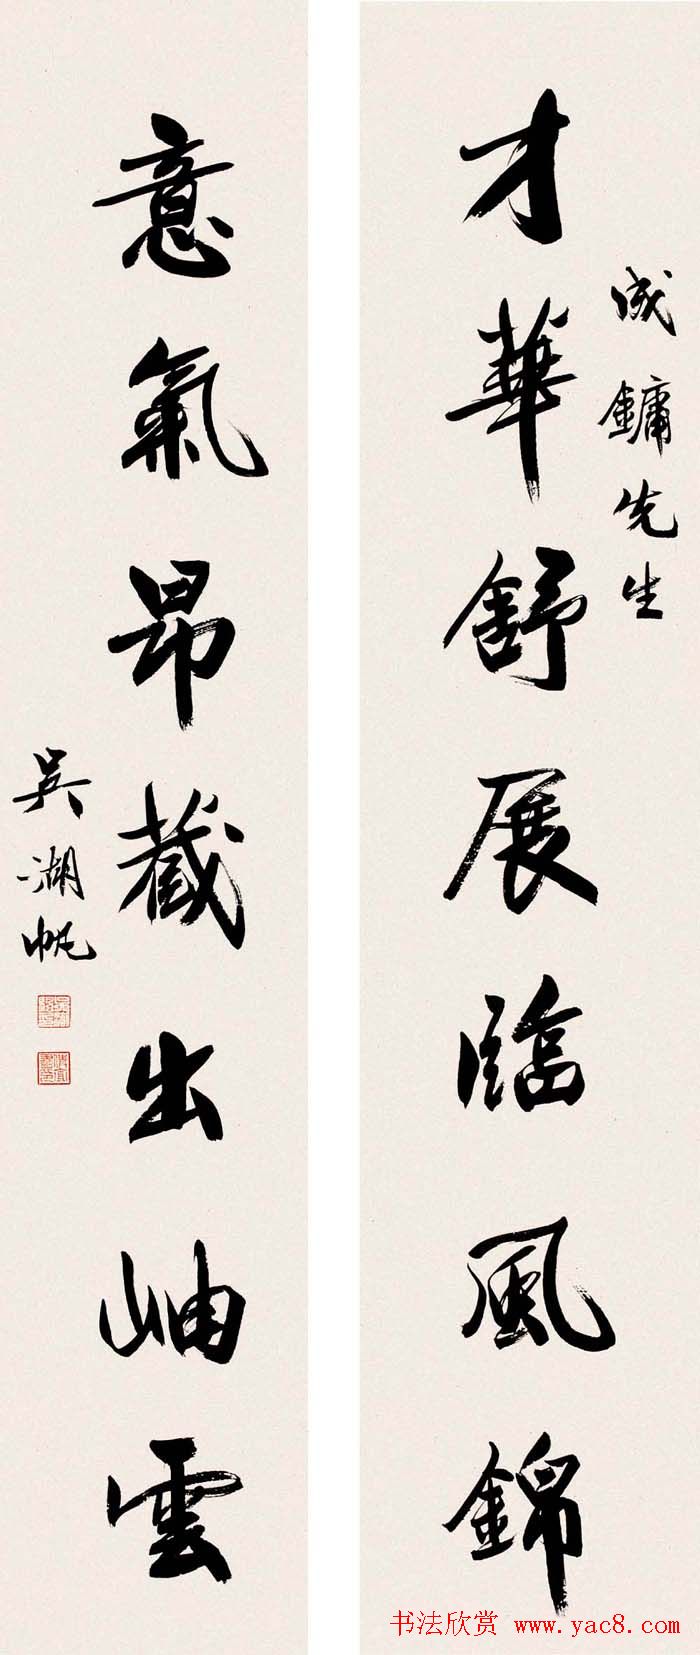 成鏞先生
才華舒展臨風錦
意氣昂藏出岫雲
吳湖帆
书法欣赏 www.yac8.com